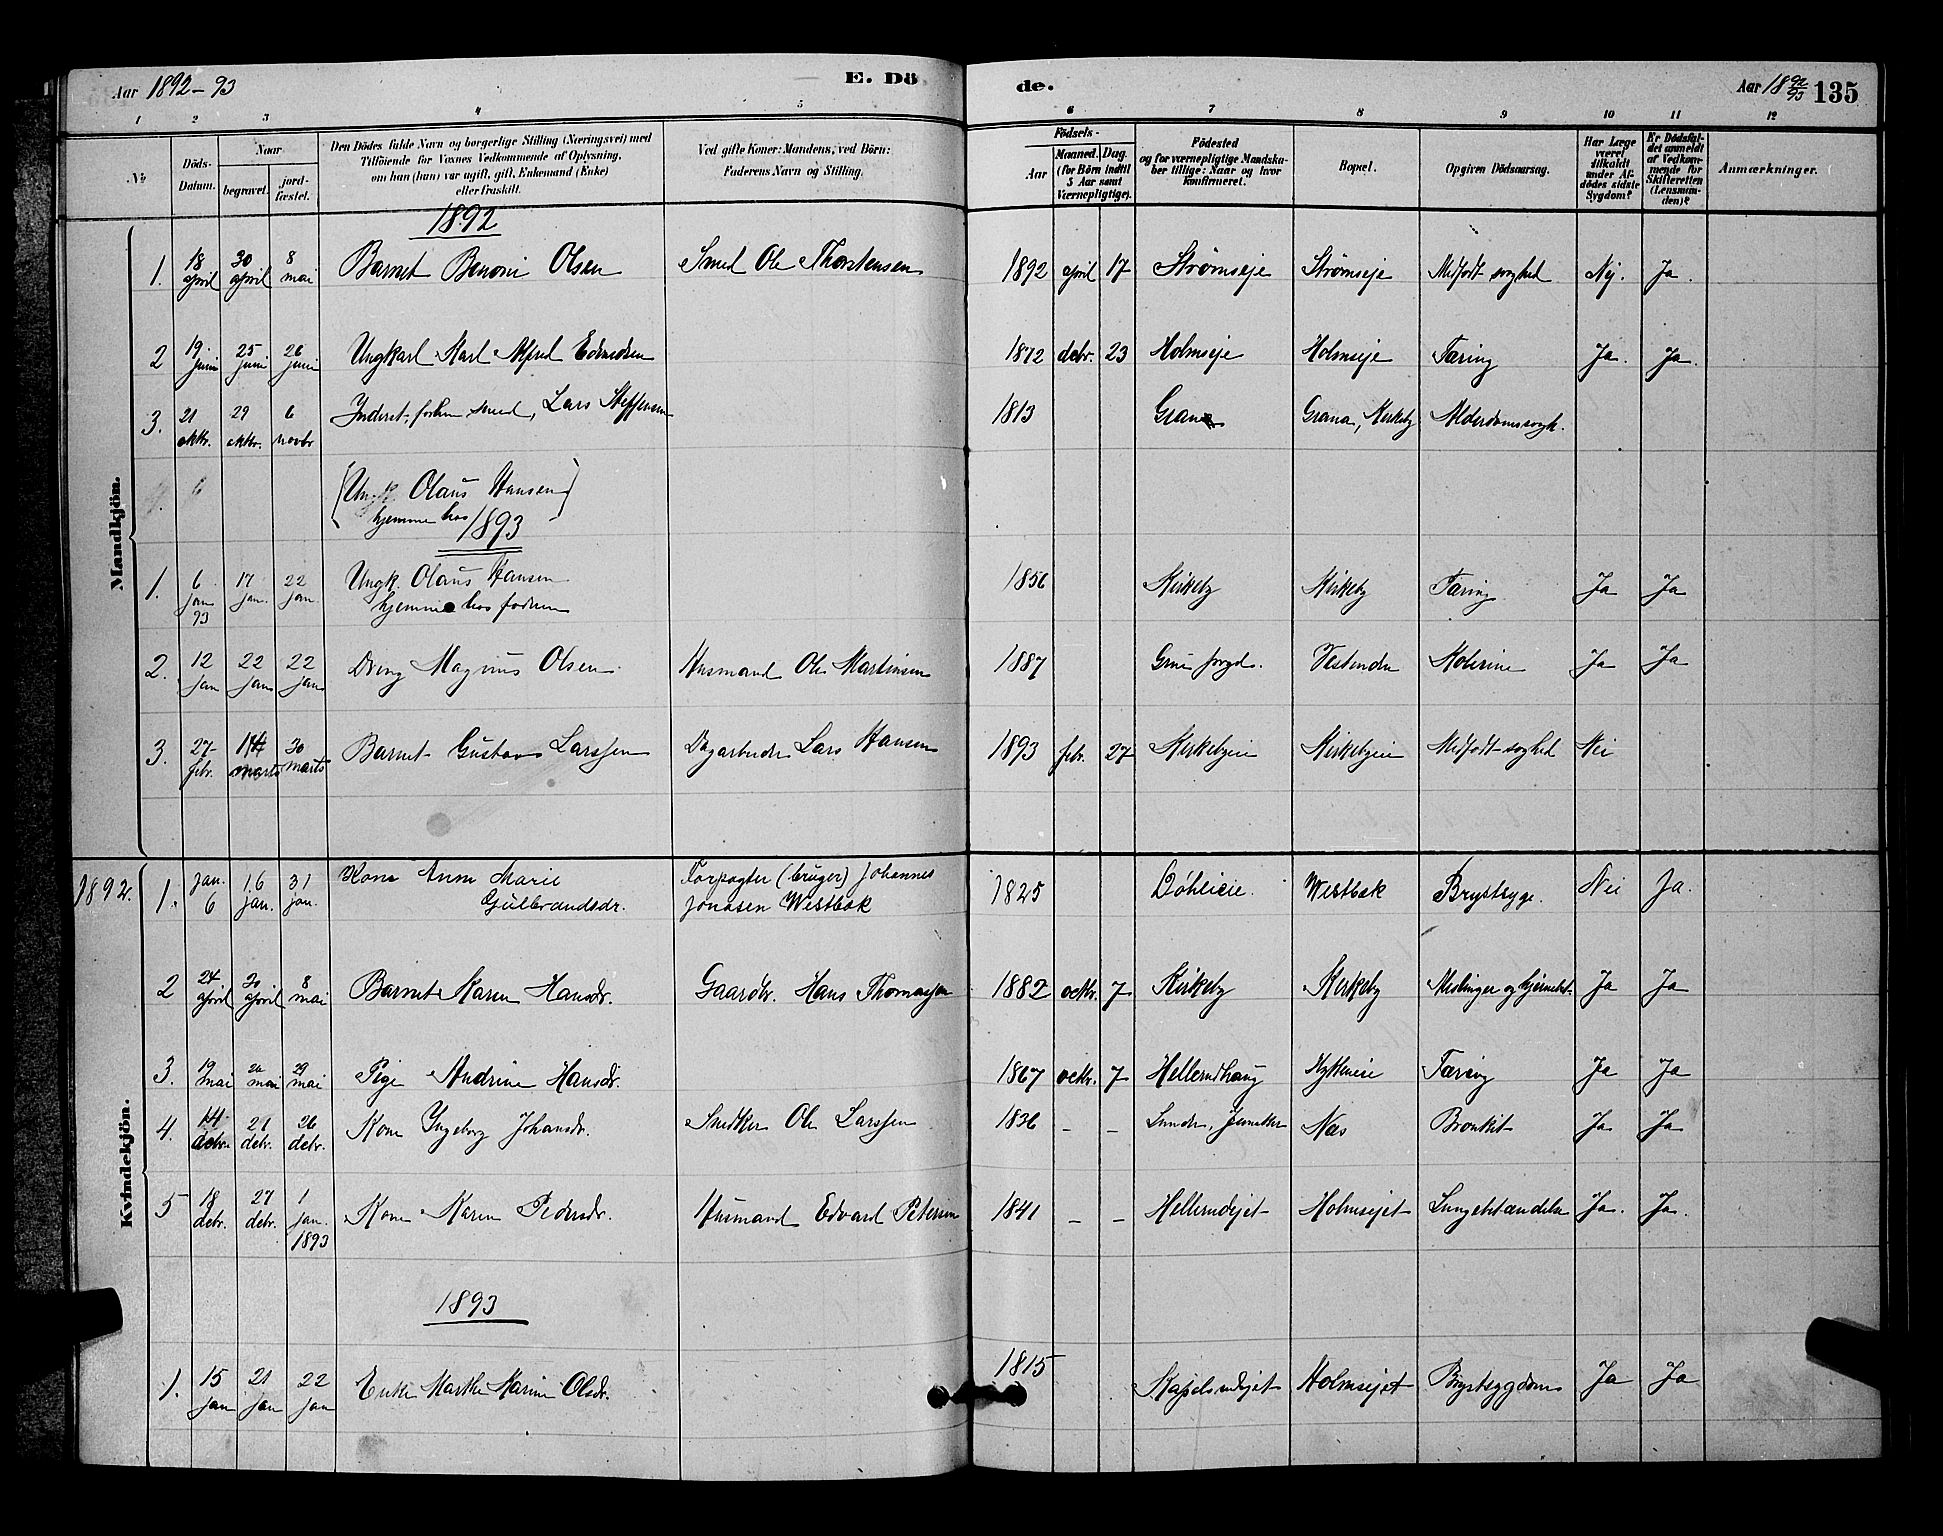 Aar 1892-93
E. Dö
de.
Aar 1892/93 135
1 2 3 4 5 6 7 8 9 10 11 12
No
Döds-Datum.
Naar
begravet.
jord-fæstet.
Den Dödes fulde Navn og borgerlige Stilling (Næringsvei) med
Tilföiende for Voxnes Vedkommende af Oplysning,
om han (hun) var ugift, gift, Enkemand (Enke)
eller fraskilt.
Ved gifte Koner: Mandens, ved Börn:
Faderens Navn og Stilling.
Födsels-
Aar
Maaned. Dag.
(for Börn indtil
5 Aar samt
Værnepligtige).
Födested
og for værnepligtige Mandska-
ber tillige: Naar og hvor
konfirmeret.
Bopæl.
Opgiven Dödsaarsag.
Har Læge
været
tilkaldt
under Af-
dödes sidste
Sygdom?
Er Dödsfal-
det anmeldt
af Vedkom-
mende for
Skifteretten
(Lensman-
den)?
Anmærkninger.
Mandkjön.
1892
1. 18 april 30 april 8 mai Barnet Benoni Olsen Smed Ole Thorstensen 1892 april 17 Strømseje Strømseje Medfødt svaghed Nej. Ja.
2 19 juni 25 juni 26 juni Ungkarl Karl Alfred Edvardsen 1872 debr. 23 Holmseje Holmseje Tæring Ja. Ja.
3. 21 oktbr. 29 oktbr. 6 novbr Inderst, forhen smed, Lars Steffensen 1813 Grana Grana, Kirkeby Alderdomssvagh.
6 (Ungk. Olaus Hansen)
hjemme hos
1893
1. 6 jan 93 17 jan. 22 jan Ungk. Olaus Hansen 1856 Kirkeby Kirkeby Tæring Ja Ja
hjemme hos fadren
2. 12 jan 22 jan 22 jan Dreng Magnus Olsen Husmand Ole Martinsen 1887 Grue prgd. Vestenden Ja Ja
3. 27 febr. 14 marts 30 marts Barnet Gustav Larssen Dagarbeider Lars Hansen 1893 febr. 27 Kirkebyeie Kirkebyeie Medfødt svaghed Nei
Kvindekjön.
1892.
1. jan. 6 16 jan. 31 jan. Kone Anne Marie Forpagter (bruger) Johannes 1825 Döhlieie. Westbæk Brystsyge. Nei Ja.
Gulbrandsdr. Jonasen Westbæk
2 24 april 30 april 8 mai Barnet Karen Hansdr. Gaardbr. Hans Thomassen 1882 octbr. 7 Kirkeby Kirkeby Meslinger og hjernebet. Ja Ja
3. 19 mai 26 mai 29 mai Pige Andrine Hansdr. 1867 octbr. 7 Hellerudhaug Hytteneie Tæring Ja Ja
4. 14 debr. 21 debr. 26 debr. Kone Ingeborg Johansdr. Snedker Ole Larssen 1836 - - Sunde, Næs Bronkit Ja Ja
5 18 debr. 27 debr. 1 jan. 1893 Kone Karen Pedersdr. Husmand Edvard Petersen 1841 - - Hellerudejet Holmsejet Lungebetændelse Ja. Ja.
1893
1. 15 jan 21 jan 22 jan Enke Marthe Karine Olsdr. 1815 Kapelsrudejet Holmsejet Brystsygdom Ja Ja